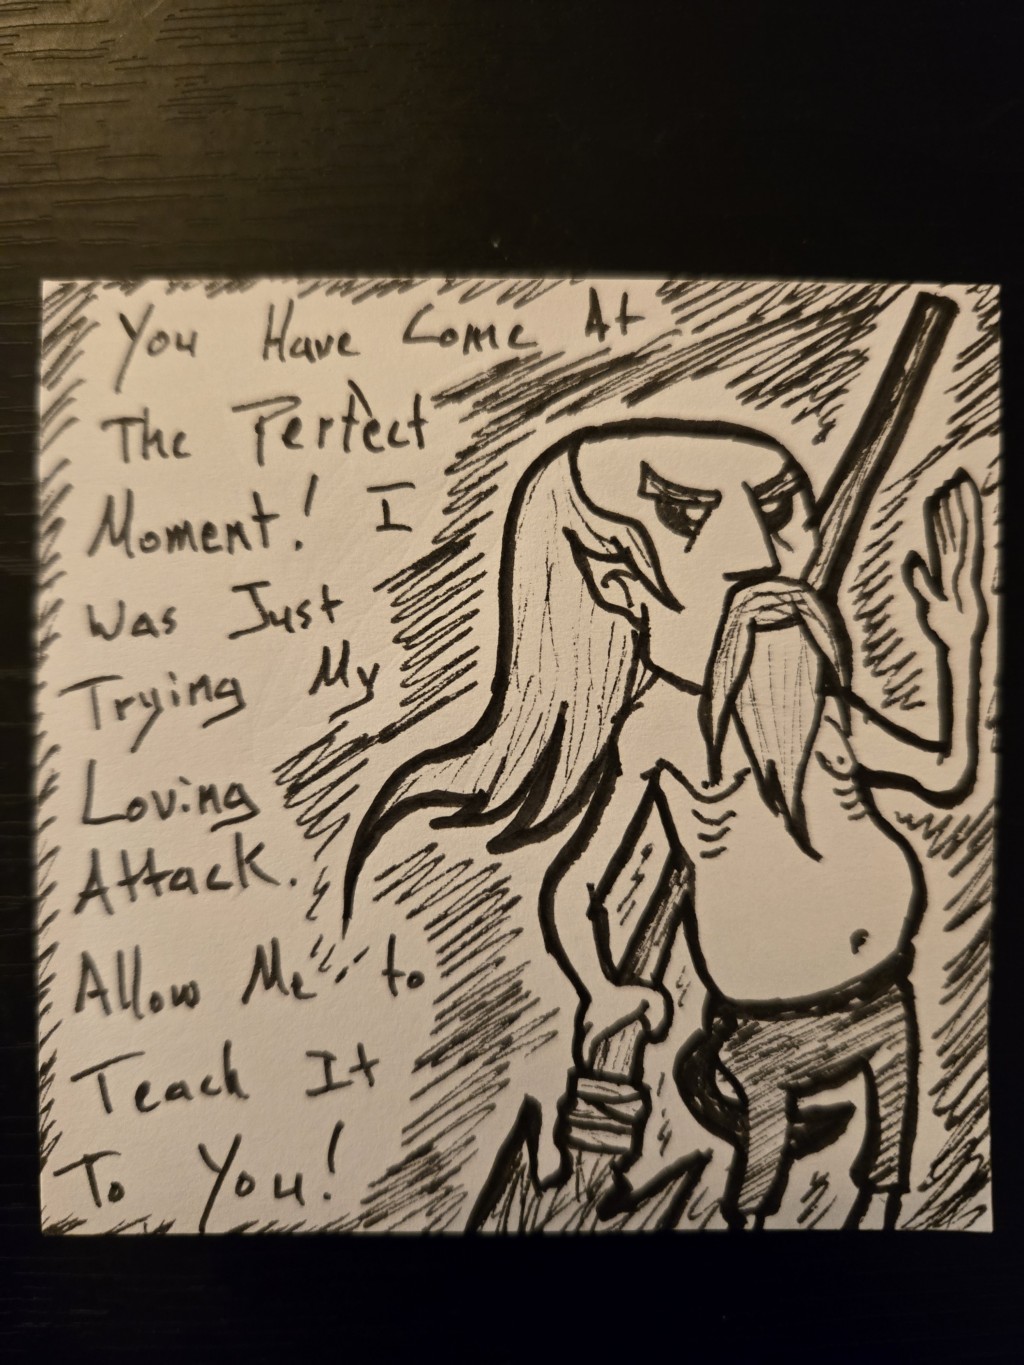 You Have Come At
The Perfect
Moment! I
Was Just
Trying My
Loving
Attack.
Allow Me to
Teach It
To You!